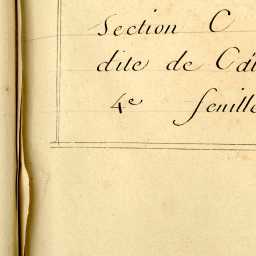 Section C
dite de
4e feuille